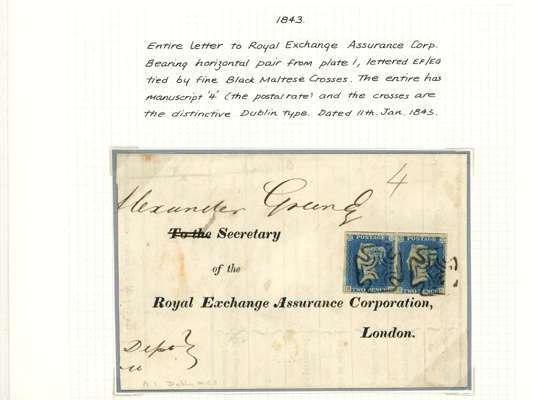 1843.
Entire letter to Royal Exchange Assurance Corp.
Bearing horizontal pair from plate 1, lettered EF/EG
tied by fine Black Maltese Crosses. The entire has
manuscript '4' (the postal rate) and the crosses are
the distinctive Dublin type. Dated 11th. Jan. 1843.
4
Alexander Green
To the Secretary
of the
POSTAGE POSTAGE
TWO PENCE TWO PENCE
Royal Exchange Assurance Corporation,
London.
Dept